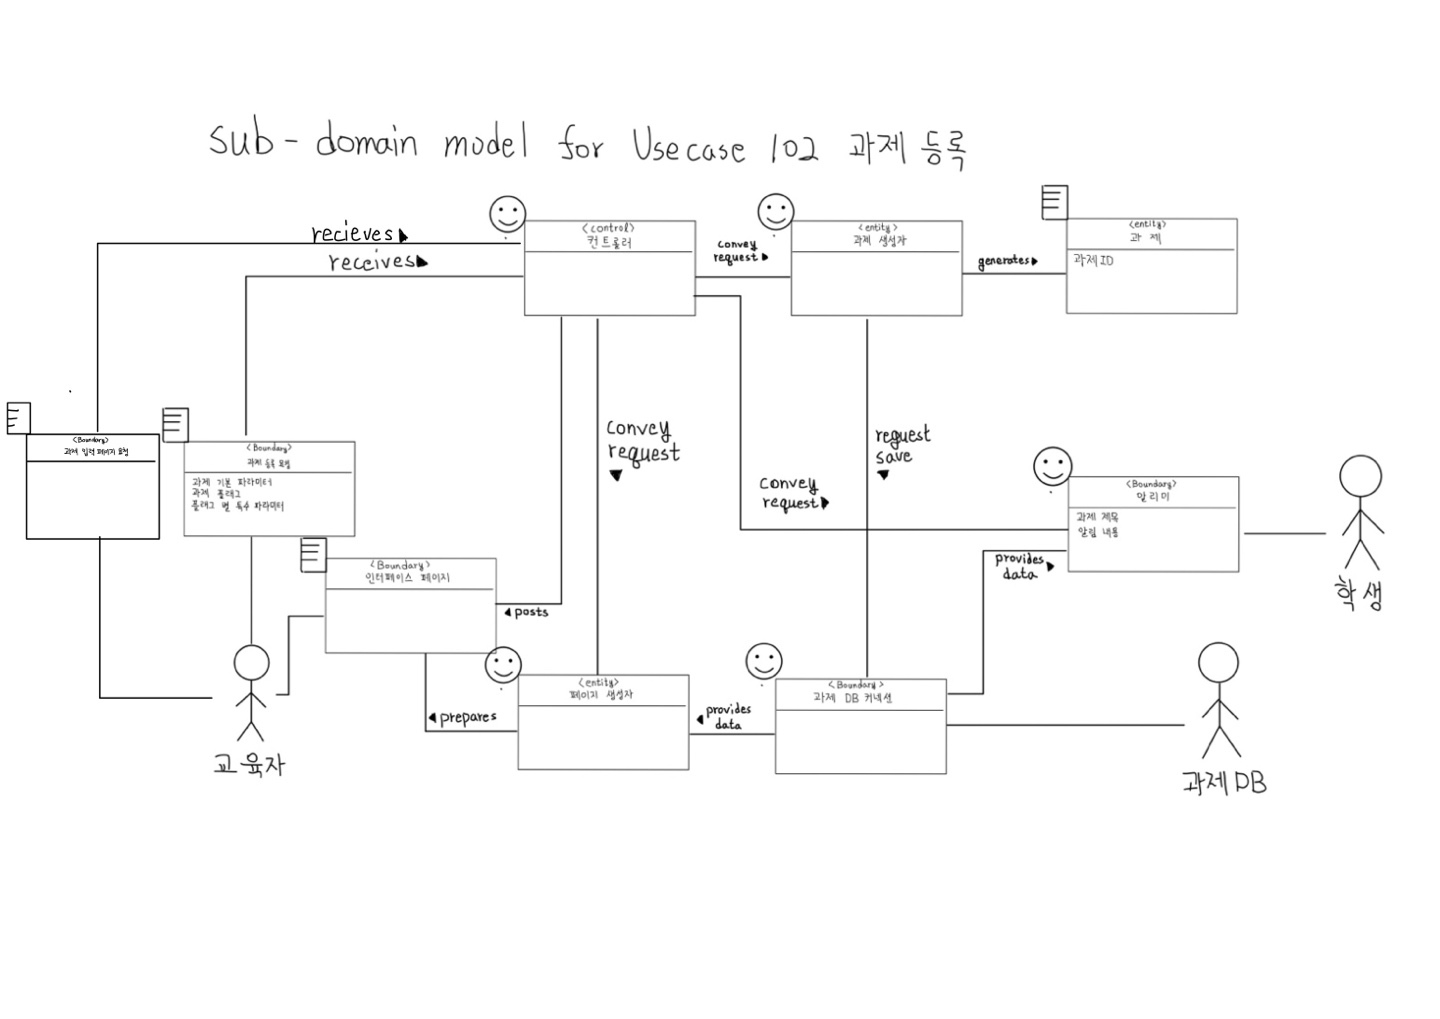 sub-domain model for Usecase 102 과제 등록
recieves
receives
<control>
컨트롤러
convey
request
<entity>
과제 생성자
generates
<entity>
과 제
과제 ID
<Boundary>
과제 입력 페이지 요청
<Boundary>
과제 등록 요청
과제 기본 파라미터
과제 플래그
플래그 별 특수 파라미터
convey
request
request
save
convey
request
<Boundary>
알리미
과제 제목
알림 내용
학생
<Boundary>
인터페이스 페이지
posts
provides
data
<entity>
페이지 생성자
prepares
provides
data
<Boundary>
과제 DB 커넥션
교육자
과제 DB